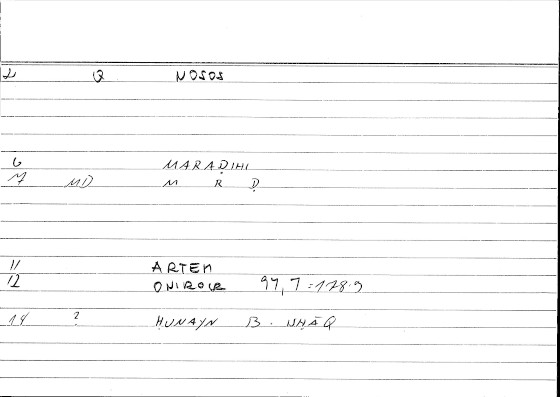 2 Q NOSOS
6 MARAḌIHI
7 MD M R Ḍ
11 ARTEM
12 ONIROCR 97,7=178.9
14 ? ḤUNAYN B. ISḤĀQ